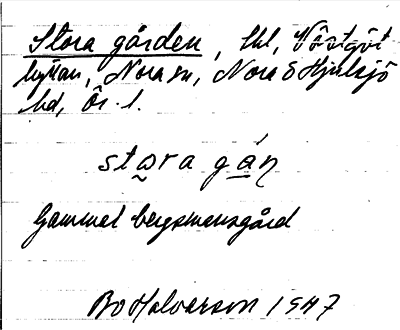 Stora gården, hl, Västgöt
hyttan, Nora sn, Nora & Hjulsjö
bd, Ör. l.
stora gán
Gammal bergsmansgård
Bo Halvarson 1947